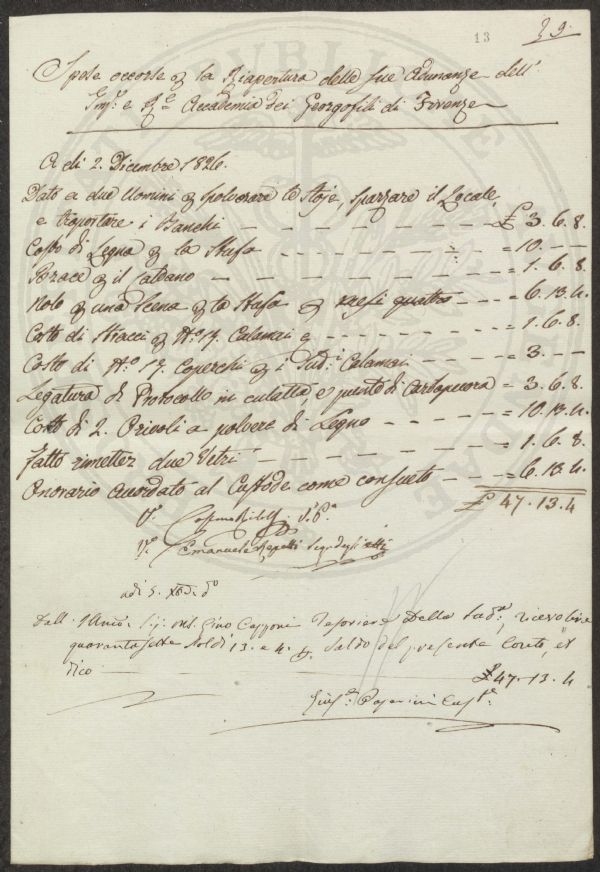 13
29
Spese occorse p la Riapertura delle sue Adunanze dell'
Imp. e R.e Accademia dei Georgofili di Firenze
A dì 2. Dicembre 1826.
Dato a due Uomini p spolverare le stoje, spazzare il Locale,
e riportare i Banchi — — — — — — £ 3. 6. 8.
Costo di Legna p la Stufa — — — — — = 10. — —
Brace p il Caldano — — — — — — = 1. 6. 8.
Nolo p una Scena p la Stufa p mesi quattro — — = 6. 13. 4.
Costo di Stracci p N.o 17. Calamai e — — — — = 1. 6. 8.
Costo di N.o 17. Coperchi p i Sud.i Calamai — — — = 3. — —
Legatura di Protocollo in culatta e punte di Cartapecora = 3. 6. 8.
Costo di 2. Orivoli a polvere di Legno — — — — = 10. 13. 4.
Fatto rimetter due Vetri — — — — — = 1. 6. 8.
Onorario accordato al Custode come consueto — — = 6. 13. 4.
£ 47. 13. 4
V.o Cosimo Ridolfi
V.o Emanuele Repetti Seg. degli atti
adì 5. Xbre d.o
Dall' Sig. M. Gino Capponi Tesoriere della Sud.a, ricevo lire
quarantasette soldi 13. e 4. p. Saldo del presente Conto,
dico — — £ 47. 13. 4
Gius.e Pagarini Cust.e